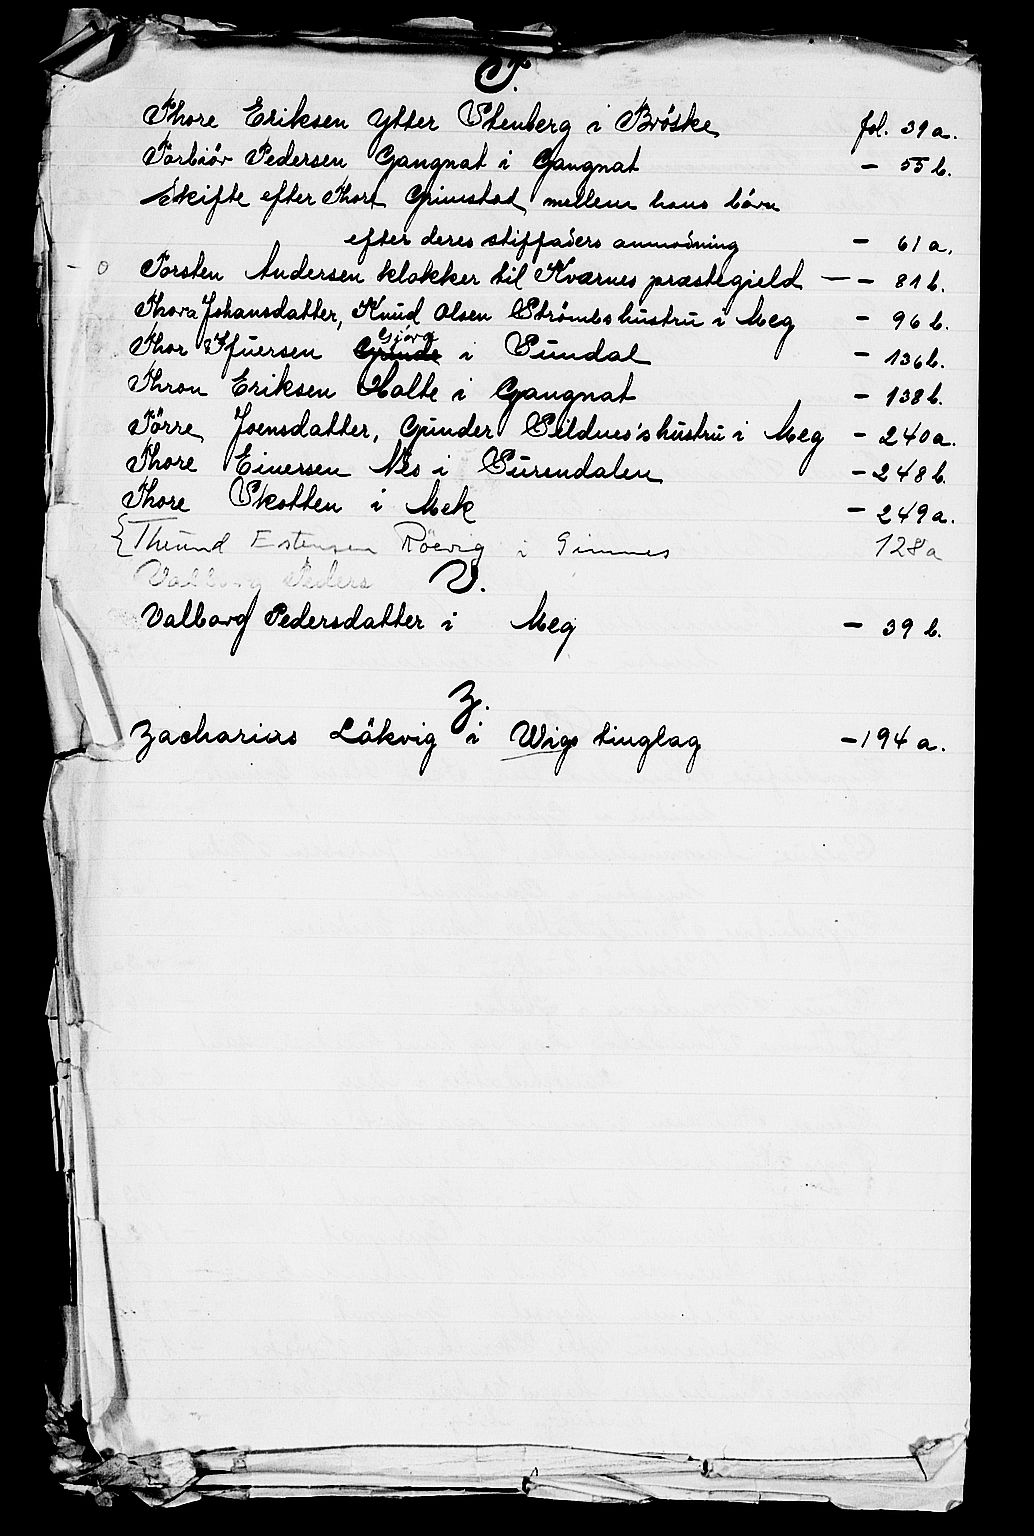 T.
Thore Eriksen Ytter Stenberg i Bröske fol. 39a.
Torbiör Pedersen Gangnat i Gangnat – 55 b.
Skifte efter Thort Grimstad mellem hans börn
efter deres stiffaders anmodning – 61 a.
– o Torsten Andersen klokker til Kværnes præstegield – – 81 b.
Thora Johansdatter, Knud Olsen Ströms hustru i Meg – 96 b.
Giöra
Thor Ifuersen Grinde i Sundal – 136 b.
Thron Eriksen Halte i Gangnat – 138 b.
Törre Joensdatter, Gunder Seildnes's hustru i Meg – 240a.
Thore Einersen Nes i Surendalen – 248 b.
Thore Skotten i Mek – 249a.
{ Theund Estensen Röevig i Gimnes 128a
Valborg Peders V.
Valborg Pedersdatter i Meg – 39 b.
Z.
Zacharias Läkvig i Wigs tinglag – 194 a.